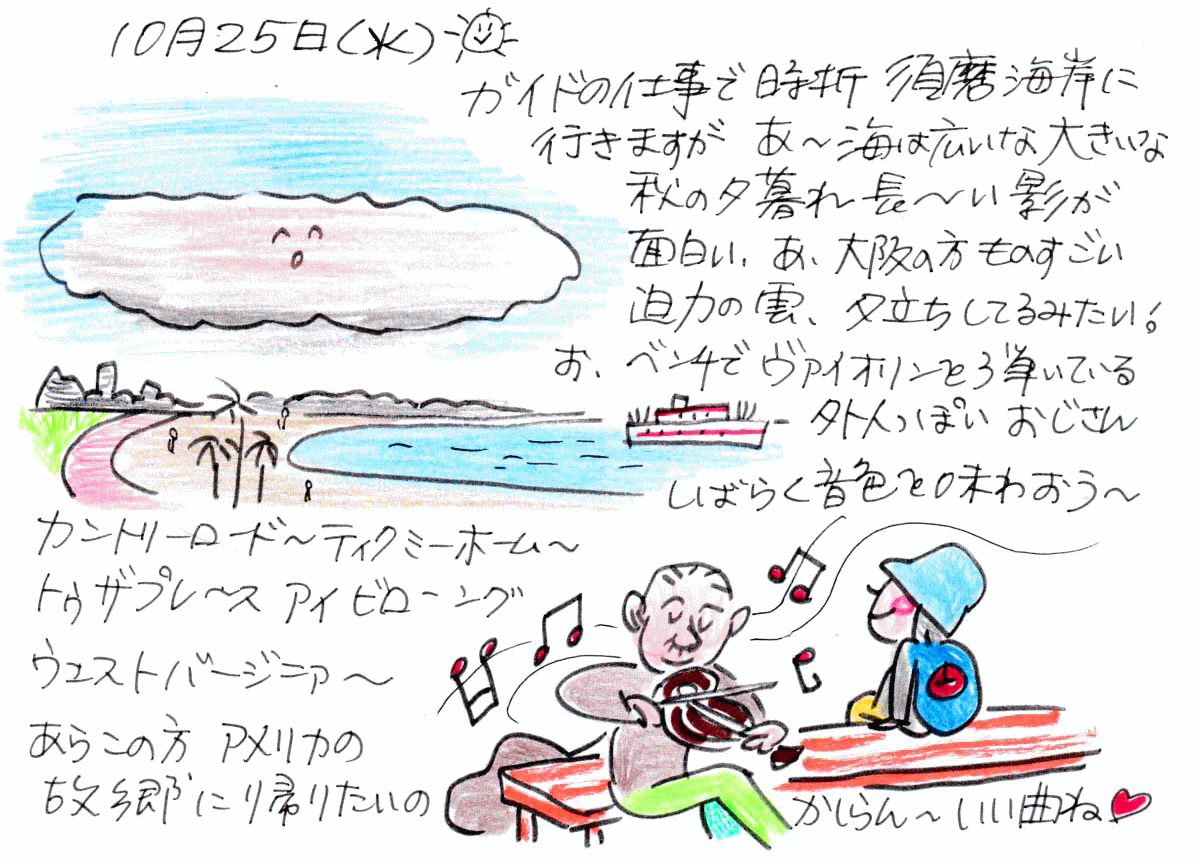 10月25日(水)
ガイドの仕事で 時折 須磨海岸に
行きますが あ〜海は広いな大きいな
秋の夕暮れ 長〜い影が
面白い、あ、大阪の方ものすごい
迫力の雲、夕立ちしてるみたい!
お、ベンチでヴァイオリンを弾いている
外人っぽい おじさん
しばらく音色を味わおう〜
カントリーロード〜ティクミーホーム〜
トゥザプレ〜ス アイビローング
ウェストバージニァ〜
あらこの方 アメリカの
故郷に帰りたいの
かしらん〜いい曲ね